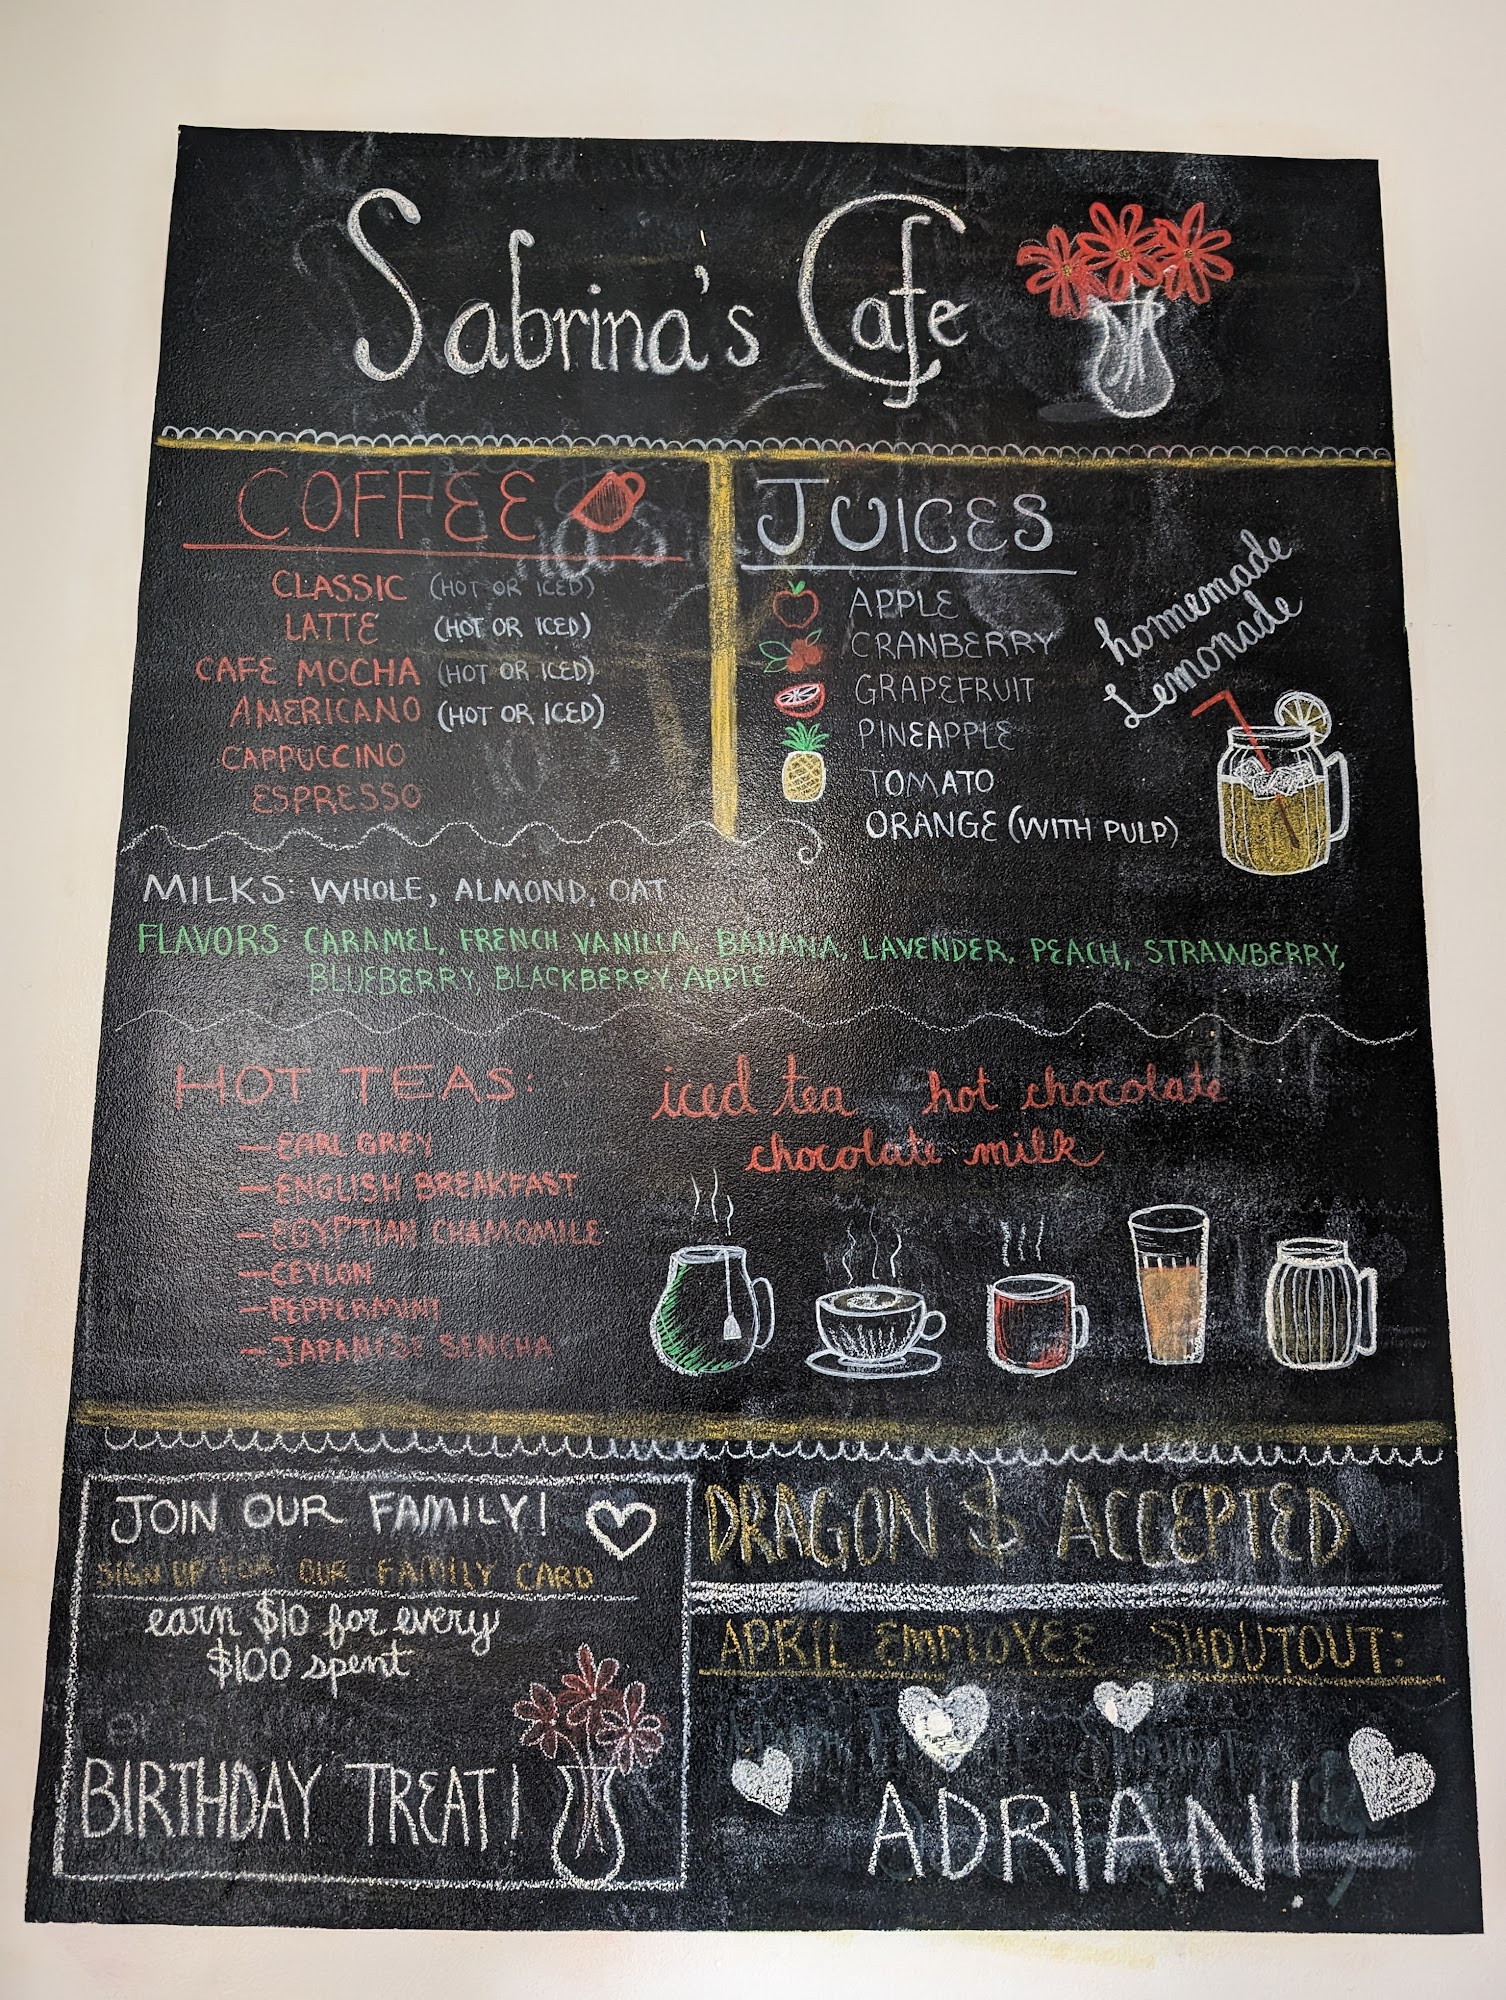 Sabrina's Cafe
COFFEE
CLASSIC (HOT OR ICED)
LATTE (HOT OR ICED)
CAFE MOCHA (HOT OR ICED)
AMERICANO (HOT OR ICED)
CAPPUCCINO
ESPRESSO
JUICES
APPLE
CRANBERRY
GRAPEFRUIT
PINEAPPLE
TOMATO
ORANGE (WITH PULP)
homemade
Lemonade
MILKS: WHOLE, ALMOND, OAT
FLAVORS: CARAMEL, FRENCH VANILLA, BANANA, LAVENDER, PEACH, STRAWBERRY,
BLUEBERRY, BLACKBERRY, APPLE
HOT TEAS:
—EARL GREY
—ENGLISH BREAKFAST
—EGYPTIAN CHAMOMILE
—CEYLON
—PEPPERMINT
—JAPANESE SENCHA
iced tea hot chocolate
chocolate milk
JOIN OUR FAMILY!
SIGN UP FOR OUR FAMILY CARD
earn $10 for every
$100 spent
BIRTHDAY TREAT!
DRAGON $ ACCEPTED
APRIL EMPLOYEE SHOUTOUT:
ADRIAN!